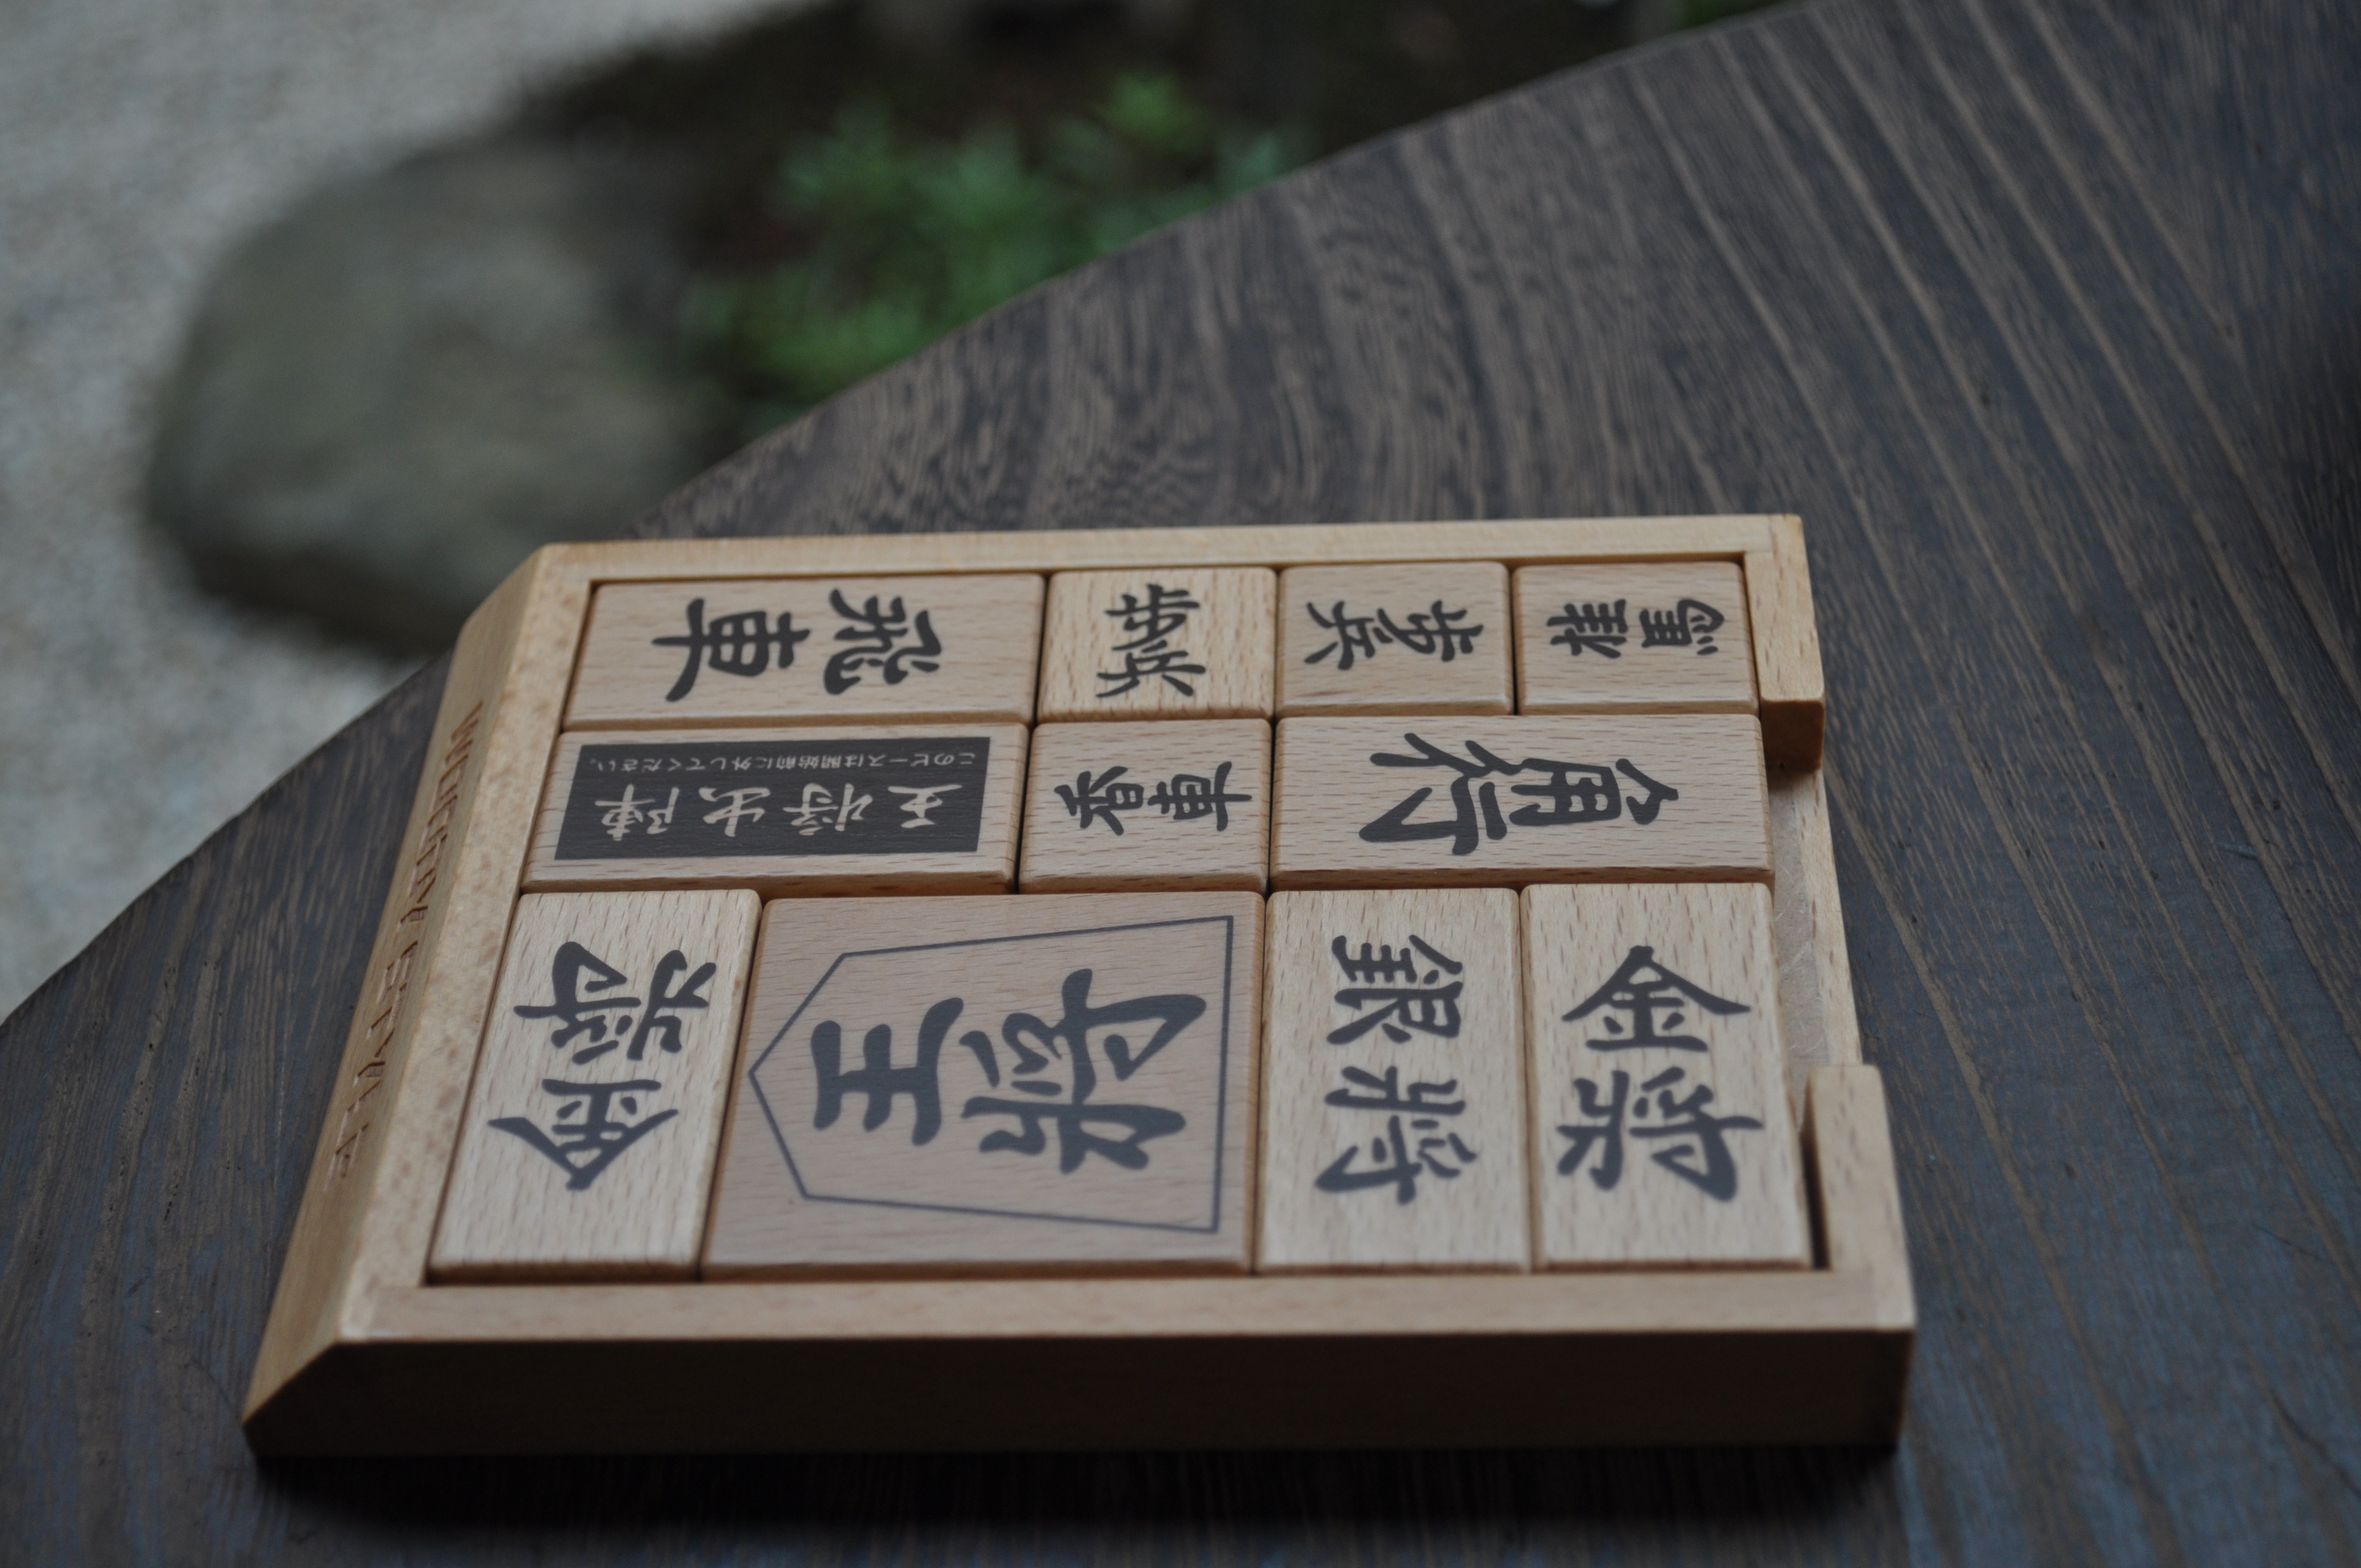 飛車
歩兵
歩兵
桂馬
このピースは開始前に外してください。
王将出陣
香車
角行
金将
王将
銀将
金将